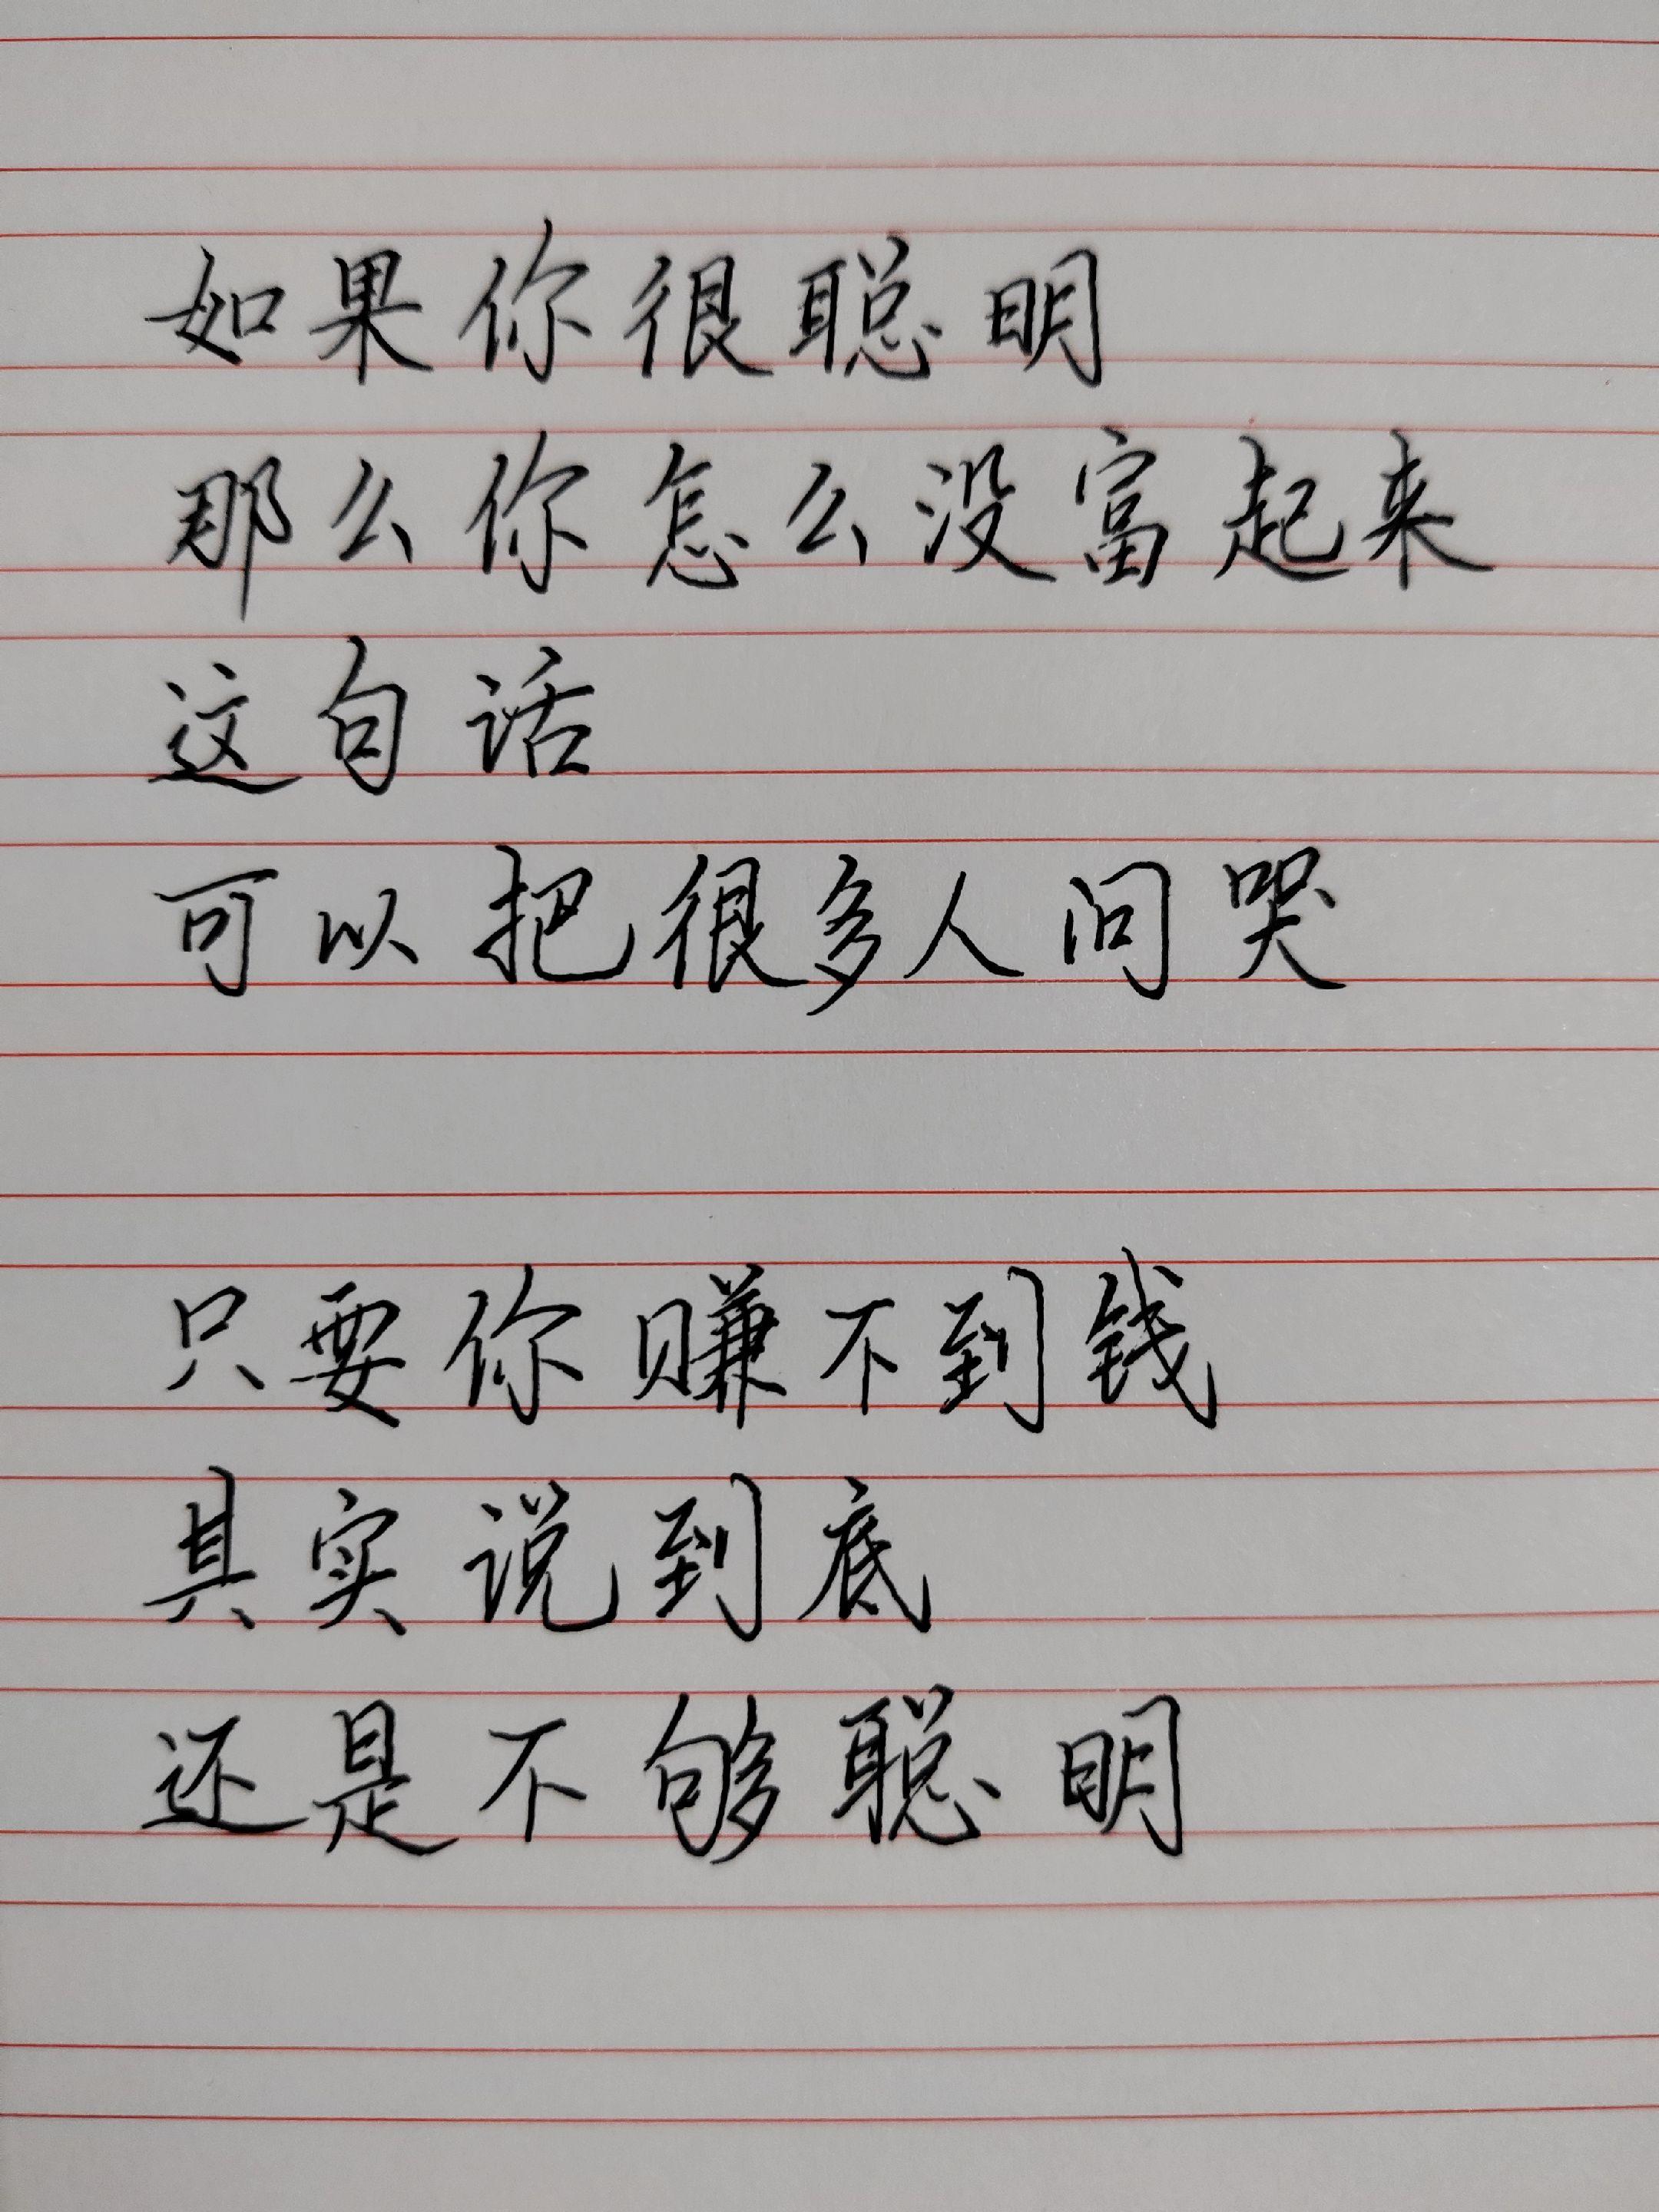 如果你很聪明
那么你怎么没富起来
这句话
可以把很多人问哭
只要你赚不到钱
其实说到底
还是不够聪明